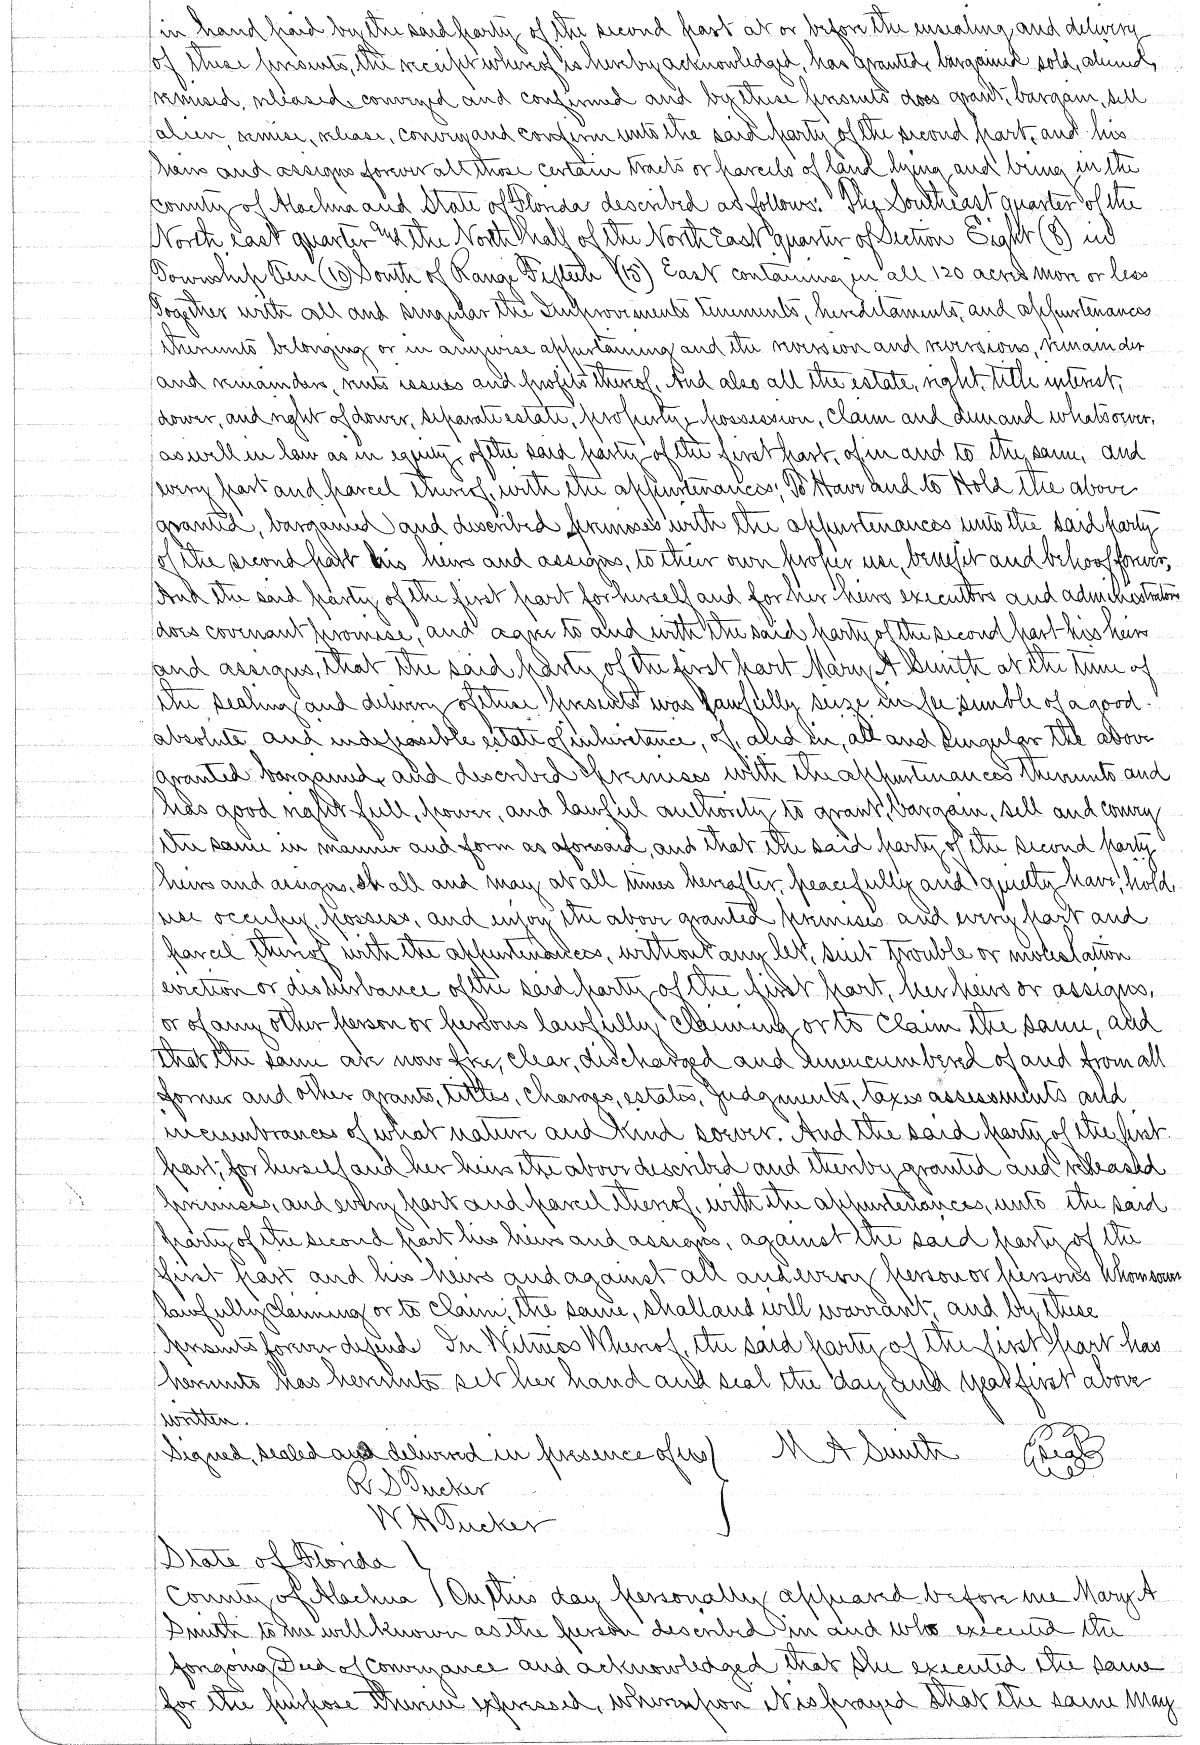 in hand paid by the said party of the second part at or before the ensealing and delivery
of these presents, the receipt whereof is hereby acknowledged, has granted, bargained sold, aliened,
remised, released, conveyed and confirmed and by these presents does grant, bargain, sell
alien, remise, release, convey and confirm unto the said party of the second part, and his
heirs and assigns forever all those certain tracts or parcels of land lying and being in the
county of Alachua and State of Florida described as follows: The Southeast quarter of the
North east quarter and the North half of the North East quarter of Section Eight (8) in
Township Ten (10) South of Range Fifteen (15) East containing in all 120 acres more or less
Together with all and singular the Improvements tenements, hereditaments, and appurtenances
thereunto belonging or in anywise appertaining and the reversion and reversions, remainder
and remainders, rents issues and profits thereof, And also all the estate, right, title interest,
dower, and right of dower, separate estate, property, possession, claim and demand whatsoever,
as well in law as in equity, of the said party of the first part, of in and to the same, and
every part and parcel thereof, with the appurtenances; To Have and to Hold the above
granted, bargained and described premises with the appurtenances unto the said party
of the second part his heirs and assigns, to their own proper use, benefit and behoof forever,
And the said party of the first part for herself and for her heirs executors and administrators
does covenant promise, and agree to and with the said party of the second part his heirs
and assigns, that the said party of the first part Mary A Smith at the time of
the sealing and delivery of these presents was lawfully seize in fee simble of a good
absolute and indefeasible estate of inheritance, of, and in, all and singular the above
granted bargained, and described premises with the appurtenances thereunto and
has good right full, power, and lawful authority to grant, bargain, sell and convey
the same in manner and form as aforesaid, and that the said party of the second party
heirs and assigns, shall and may at all times hereafter, peacefully and quietly have, hold
use occupy, possess, and enjoy the above granted premises and every part and
parcel thereof with the appurtenances, without any let, suit trouble or molestation
eviction or disturbance of the said party of the first part, her heirs or assigns,
or of any other person or persons lawfully claiming or to claim the same, and
that the same are now free, clear, discharged and unencumbered of and from all
former and other grants, titles, charges, estates, Judgments, taxes assessments and
incumbrances of what nature and kind soever. And the said party of the first
part, for herself and her heirs the above described and thereby granted and released
premises, and every part and parcel thereof, with the appurtenances, unto the said
party of the second part his heirs and assigns, against the said party of the
first part and his heirs and against all and every person or persons whomsoever
lawfully claiming or to claim, the same, shall and will warrant, and by these
presents forever defend. In Witness Whereof, the said party of the first part has
hereunto has hereunto set her hand and seal the day and year first above
written.
Signed, sealed and delivered in presence of us M A Smith (seal)
R S Tucker
W H Tucker
State of Florida
County of Alachua On this day personally appeared before me Mary A
Smith to me well known as the person described in and who executed the
foregoing Deed of Conveyance and acknowledged that she executed the same
for the purpose therein expressed, whereupon it is prayed that the same may